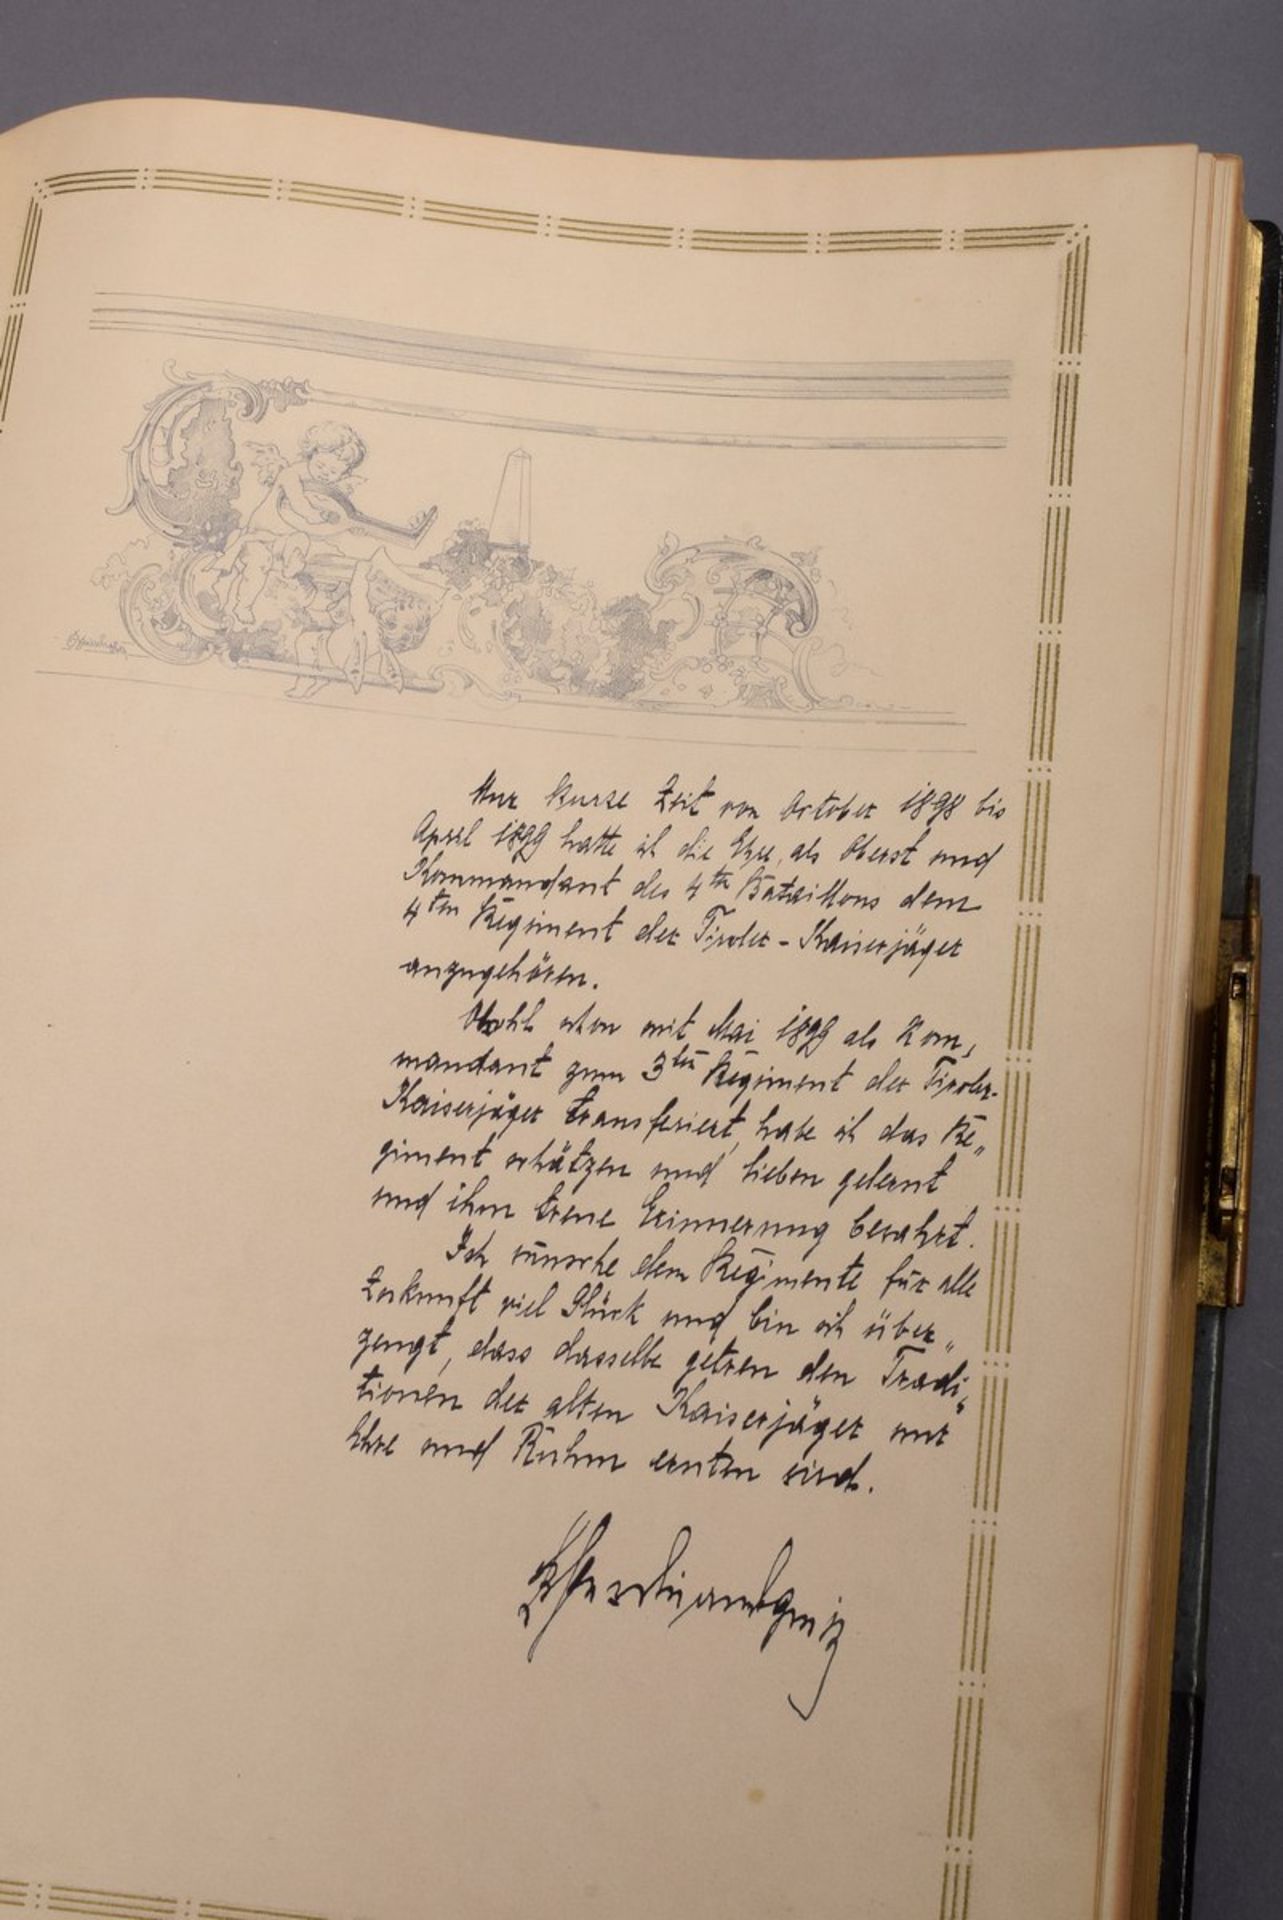 Nur kurze Zeit von October 1898 bis
April 1899 hatte ich die Ehre, als Oberst und
Kommandant des 4ten Bataillons dem
4ten Regiment der Tiroler-Kaiserjäger
anzugehören.
Obwohl schon mit Mai 1899 als Kom„
mandant zum 3ten Regiment der Tiroler-
Kaiserjäger transferiert, habe ich das Re„
giment schätzen und lieben gelernt
und ihm treue Erinnerung bewahrt.
Ich wünsche dem Regimente für alle
Zukunft viel Glück und bin ich über„
zeugt, dass dasselbe getreu den Tradi„
tionen der alten Kaiserjäger nur
Ehre und Ruhm ernten wird.